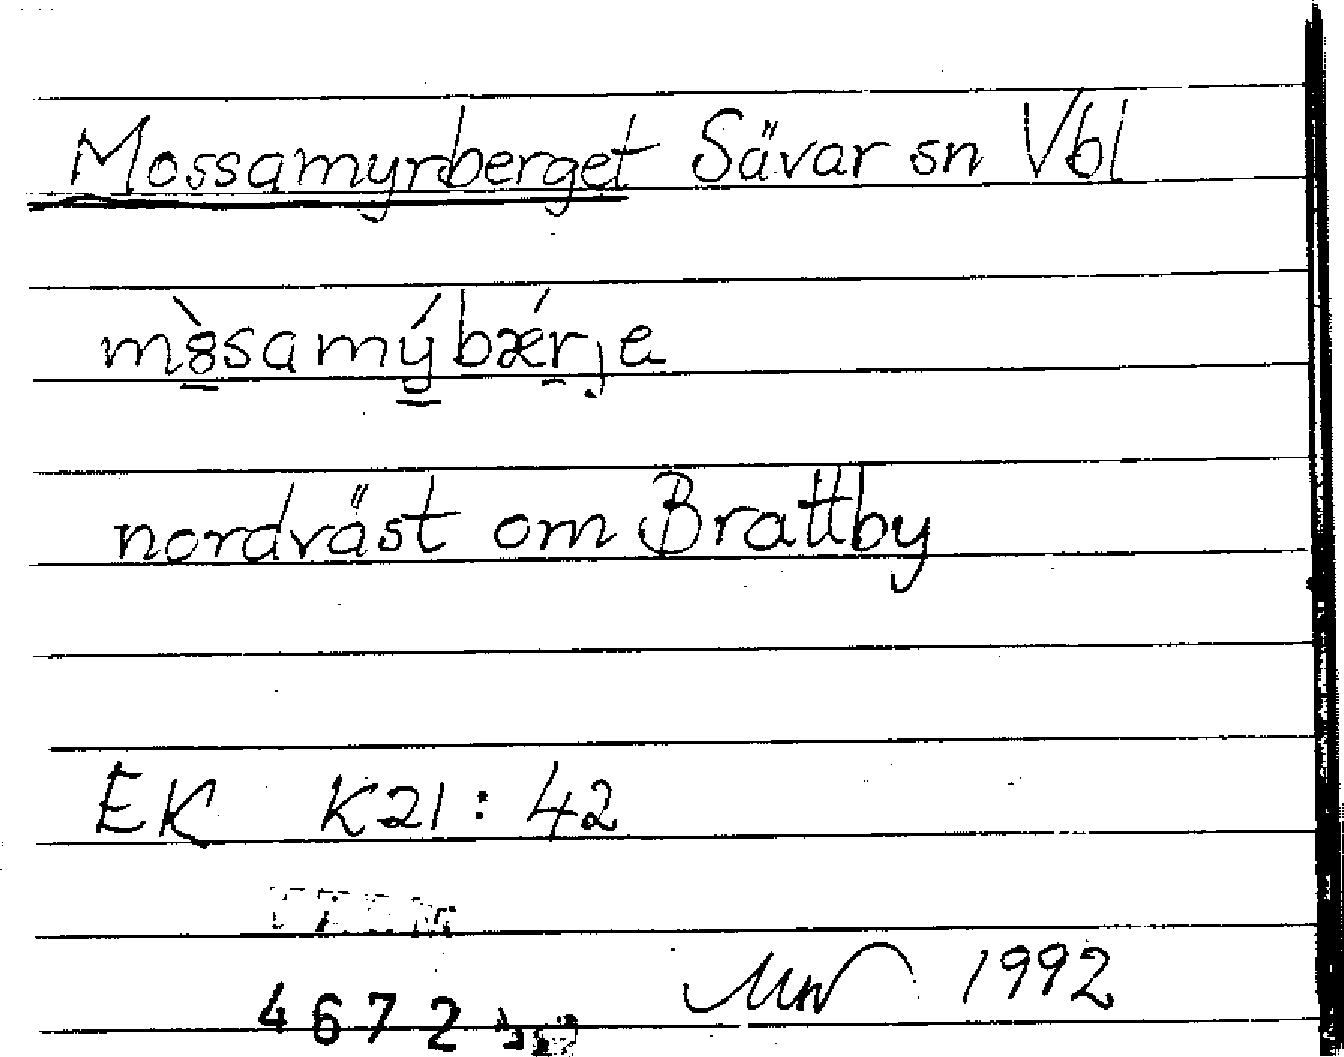 Mossamyrberget Sävar sn Vbl
mòsamýbǽrje
nordväst om Brattby
EK K21:42
1992
4672